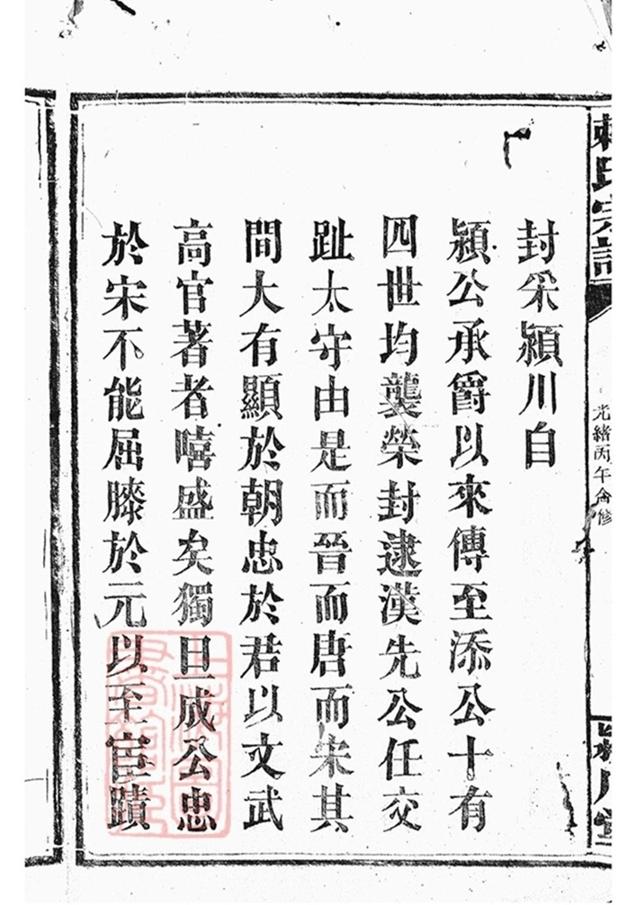 賴氏宗譜
光緒丙午合修
川堂
封采潁川自
潁公承爵以來傳至添公十有
四世均襲榮封逮漢先公任交
趾太守由是而晉而唐而宋其
間大有顯於朝忠於君以文武
高官著者嘻盛矣獨旦成公忠
於宋不能屈膝於元以至宦蹟